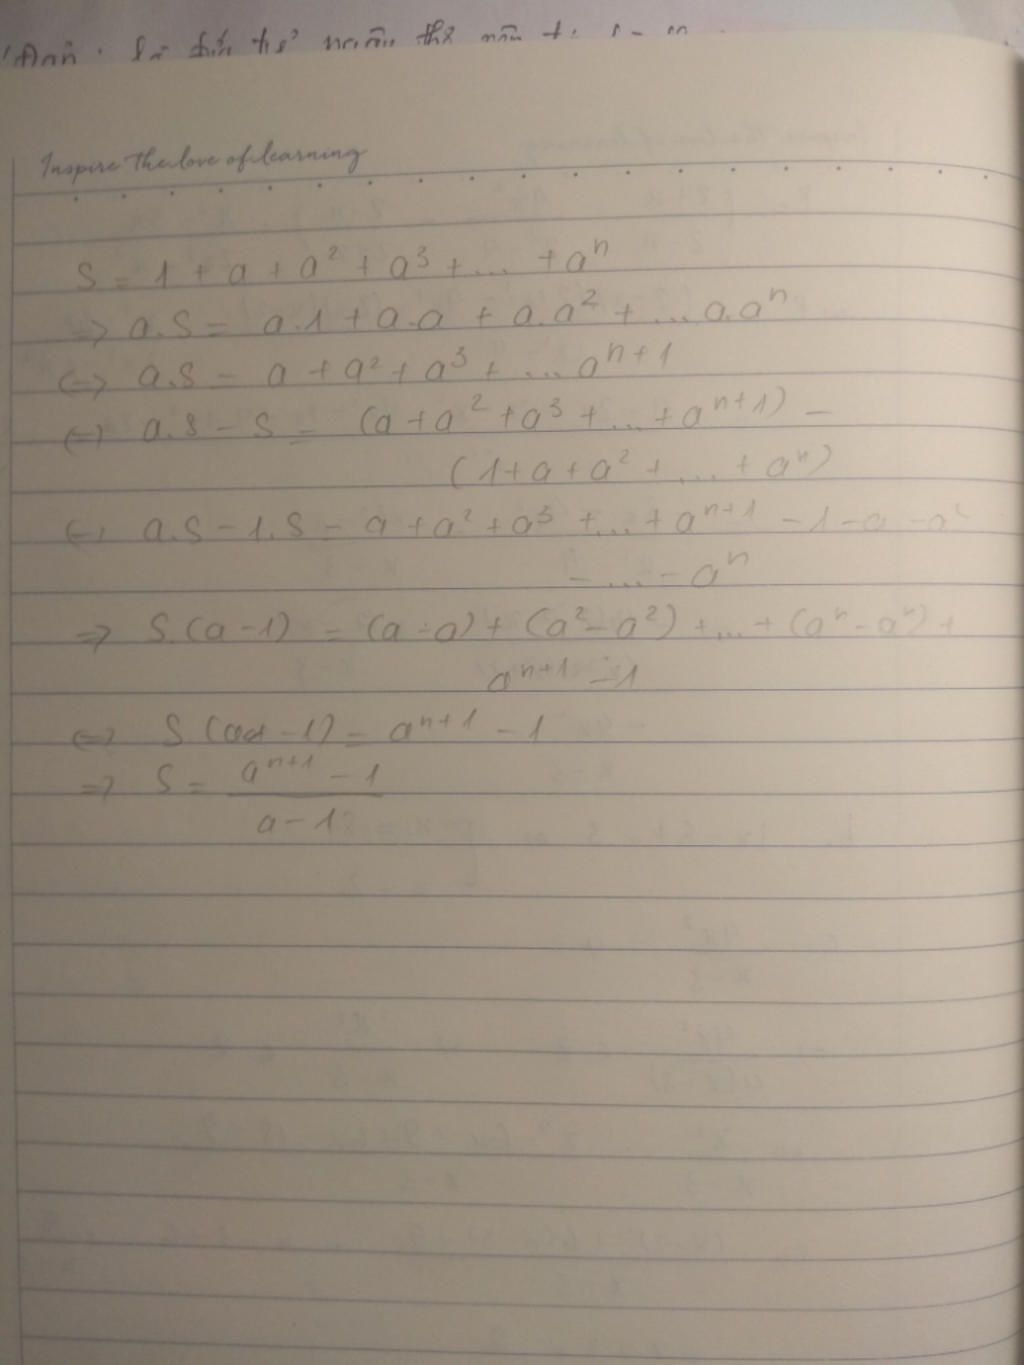 Inspire the love of learning
S = 1 + a + a² + a³ + ... + aⁿ
=> a.S = a.1 + a.a + a.a² + ... a.aⁿ
<=> a.S = a + a² + a³ + ... aⁿ⁺¹
<=> a.S - S = (a + a² + a³ + ... + aⁿ⁺¹) -
(1 + a + a² + ... + aⁿ)
<=> a.S - 1.S = a + a² + a³ + ... + aⁿ⁺¹ - 1 - a - a²
- ... - aⁿ
=> S.(a - 1) = (a - a) + (a² - a²) + ... + (aⁿ - aⁿ) +
aⁿ⁺¹ - 1
<=> S (a - 1) = aⁿ⁺¹ - 1
=> S = aⁿ⁺¹ - 1
a - 1